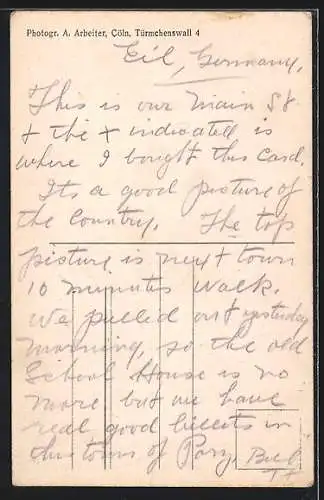 Photogr. A. Arbeiter, Cöln, Türmchenswall 4
Eil, Germany.
This is our Main St
+ the x indicated is
where I bought this card.
Its a good picture of
the Country. The top
picture is next town
10 minutes walk.
We pulled out yesterday
morning, so the old
School House is no
more but we have
real good billets in
this town of